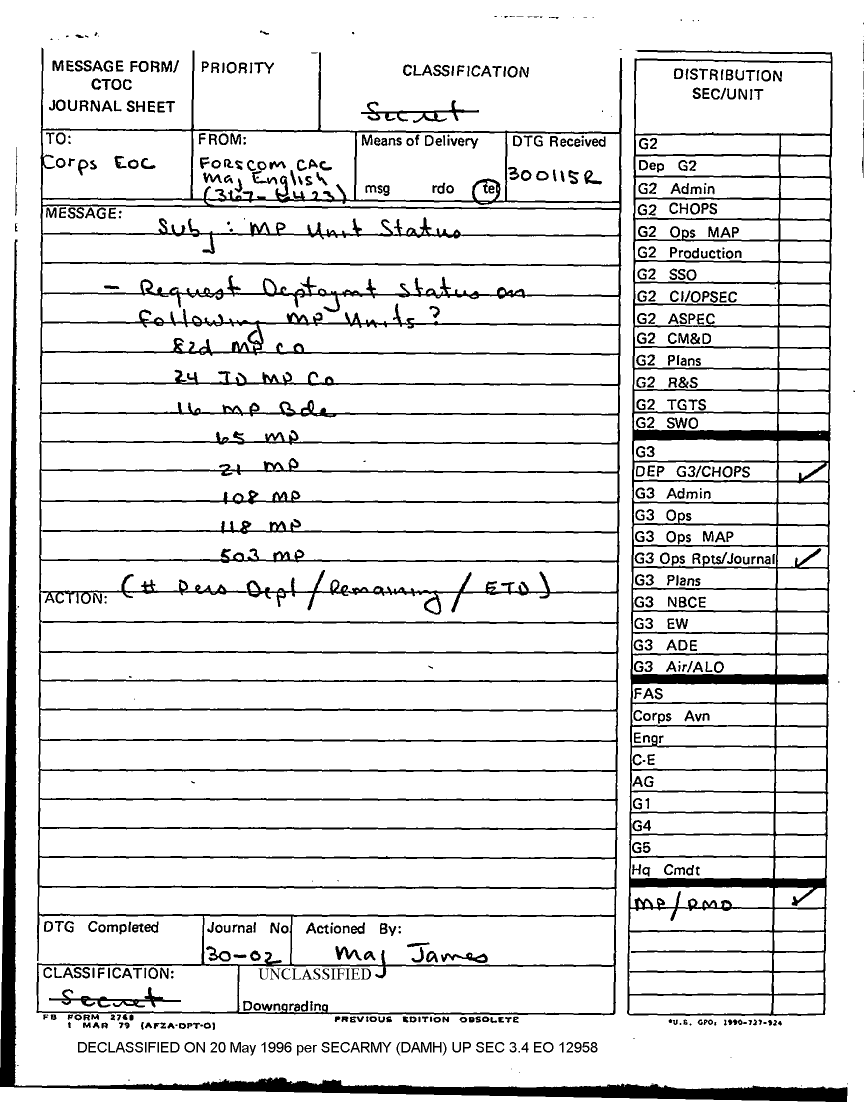 MESSAGE FORM/
CTOC
JOURNAL SHEET
PRIORITY
CLASSIFICATION
Secret
TO:
Corps EOC
FROM:
FORSCOM CAC
Maj English
Means of Delivery
msg rdo tel
DTG Received
300115R
MESSAGE:
Subj: MP Unit Status
- Request Deptoymt Status on
Following MP Units?
82d MP CO
24 ID MP Co
16 MP Bde
65 MP
21 MP
108 MP
118 MP
503 MP
ACTION:
(# Pers Depl/Remaining/ETD)
DTG Completed
Journal No
30-02
Actioned By:
Maj James
CLASSIFICATION:
Secret
UNCLASSIFIED
Downgrading
FB FORM 2768
1 MAR 79 (AFZA-DPT-O)
PREVIOUS EDITION OBSOLETE
DISTRIBUTION
SEC/UNIT
G2
Dep G2
G2 Admin
G2 CHOPS
G2 Ops MAP
G2 Production
G2 SSO
G2 CI/OPSEC
G2 ASPEC
G2 CM&D
G2 Plans
G2 R&S
G2 TGTS
G2 SWO
G3
DEP G3/CHOPS ✓
G3 Admin
G3 Ops
G3 Ops MAP
G3 Ops Rpts/Journal ✓
G3 Plans
G3 NBCE
G3 EW
G3 ADE
G3 Air/ALO
FAS
Corps Avn
Engr
C-E
AG
G1
G4
G5
Hq Cmdt
MP/PMO ✓
*U.S. GPO: 1990-727-924
DECLASSIFIED ON 20 May 1996 per SECARMY (DAMH) UP SEC 3.4 EO 12958